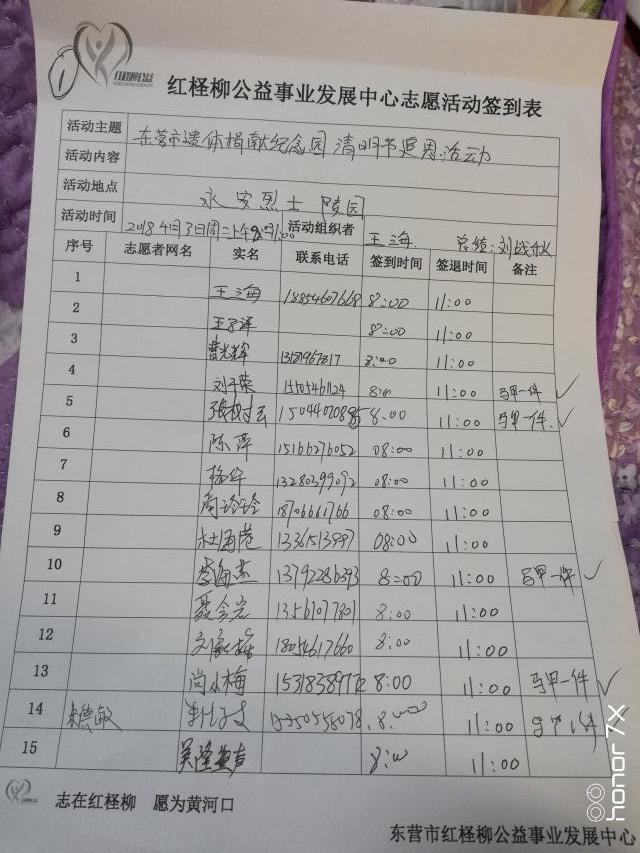 ①
红柽柳公益
红柽柳公益事业发展中心志愿活动签到表
活动主题 东营市遗体捐献纪念园清明节追思活动
活动内容
活动地点 永安烈士陵园
活动时间 2018 4月3日周二上午 活动组织者 王海 总统:刘战
序号 志愿者网名 实名 联系电话 签到时间 签退时间 备注
1 王海 18854607668 8:00 11:00
2 8:00 11:00
3 曹光辉 8:00 11:00
4 刘子荣 15505461124 8:00 11:00 马甲一件 ✓
5 8:00 11:00 马甲一件. ✓
6 陈萍 15166276052 08:00 11:00
7 杨华 13280399092 08:00 11:00
8 周玲玲 18706661766 08:00 11:00
9 杜 08:00 11:00
10 李海杰 13792286393 8:00 11:00 马甲一件 ✓
11 聂 13561077801 8:00 11:00
12 刘 18054617660 8:00 11:00
13 尚小梅 8:00 11:00 马甲一件 ✓
14 朱德敏 8:00 11:00 马甲1件
15 吴 8:00 11:00
志在红柽柳 愿为黄河口
东营市红柽柳公益事业发展中心
honor 7X